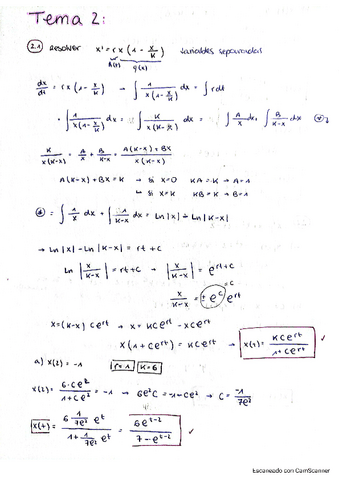 Tema 2:
2.1 resolver x' = rx(1 - x/K) variables separadas
h(t) g(x)
dx/dt = rx(1 - x/K) → ∫ 1/(x(1 - x/K)) dx = ∫ r dt
· ∫ 1/(x(1 - x/K)) dx = ∫ K/(x(K-x)) dx = ∫ A/x dx + ∫ B/(K-x) dx
K/(x(K-x)) = A/x + B/(K-x) = (A(K-x) + Bx)/(x(K-x))
A(K-x) + Bx = K → si x=0 KA = K → A=1
↳ si x=K KB = K → B=1
= ∫ 1/x dx + ∫ 1/(K-x) dx = Ln|x| - Ln|K-x|
→ Ln|x| - Ln|K-x| = rt + C
Ln |x/(K-x)| = rt + C → |x/(K-x)| = e^(rt+C)
= C
x/(K-x) = ± e^C e^rt
x = (K-x) C e^rt → x = K C e^rt - x C e^rt
x(1 + C e^rt) = K C e^rt → x(t) = K C e^rt/(1 + C e^rt) ✓
a) x(2) = -1 r=1 K=6
x(2) = 6·C e²/(1 + C e²) = -1 → 6e²C = -1 - Ce² → C = -1/(7e²)
x(t) = (6 1/(7e²) e^t)/(1 + 1/(7e²) e^t) = 6e^(t-2)/(7 - e^(t-2)) ✓
Escaneado con CamScanner